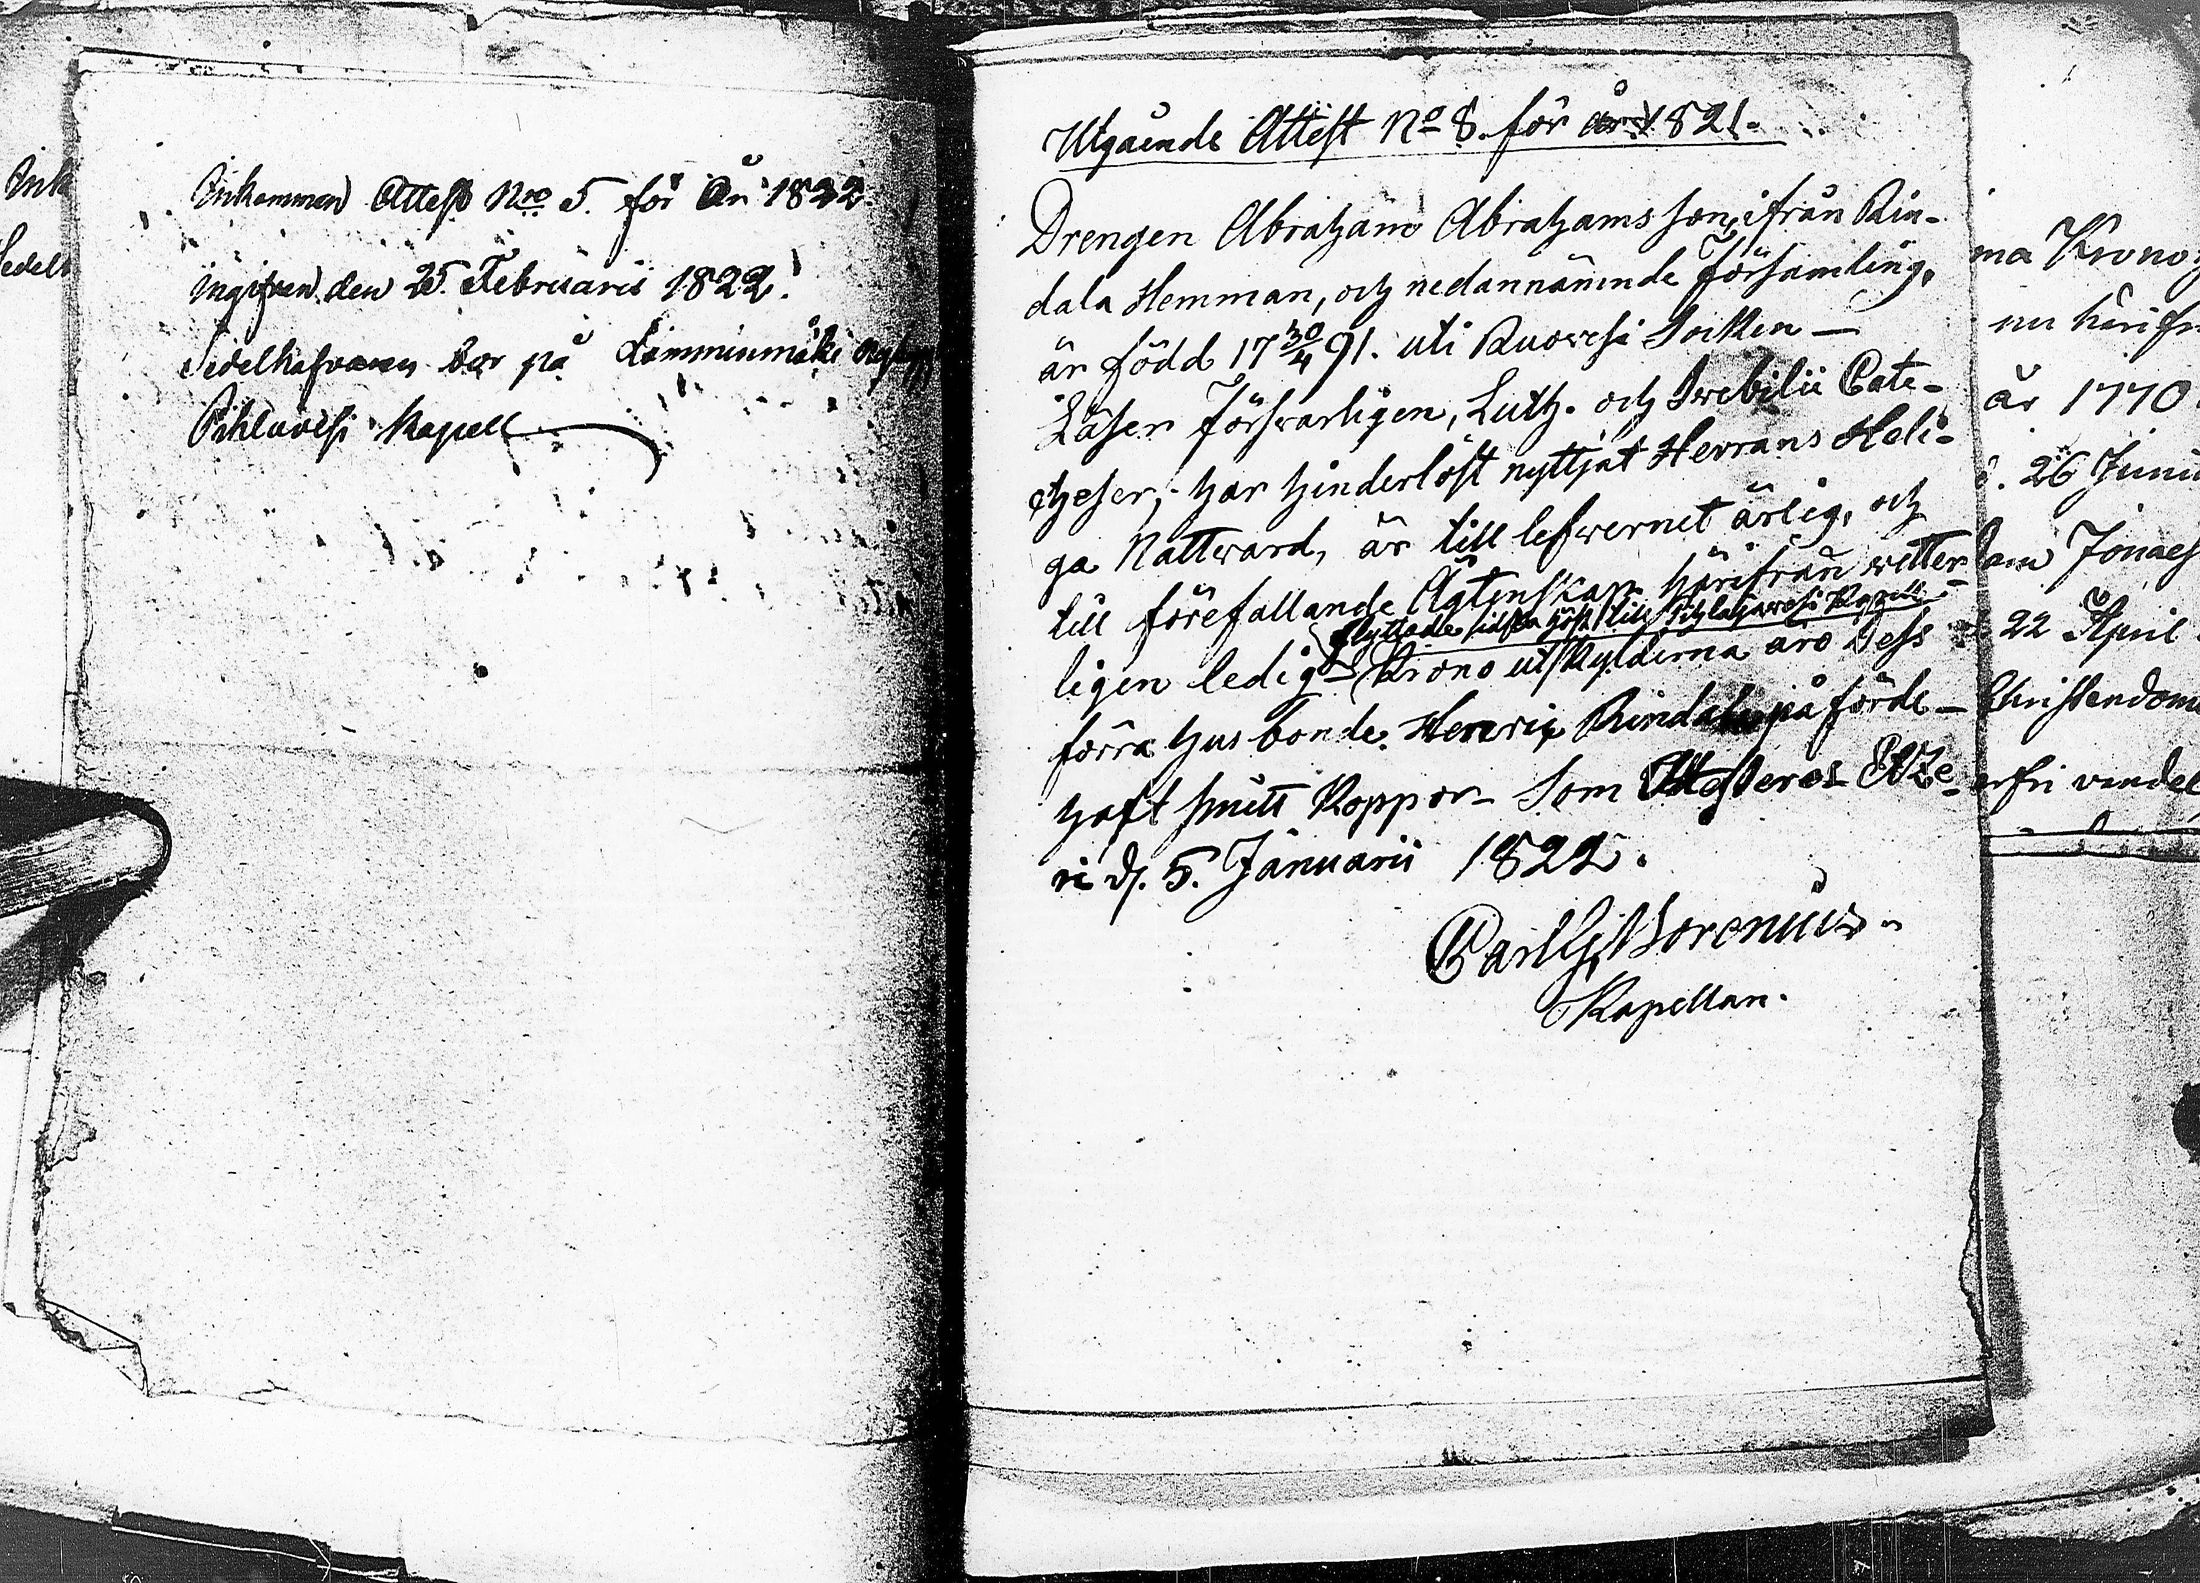 Ink
Sedel
Inkommen Attest Nro 5. för År 1822.
ingifven den 25. Februarii 1822.
Sedelhafvaren bor på Lamminmäki
Pihlavesi Kapell
Utgående Attest No 8. för år 1821.
Drengen Abraham Abrahamsson, ifrån Rin-
dala Hemman, och nedannämnde Församling,
är född 17 30/4 91. uti Ruovesi Socken —
Läser Försvarligen, Luth. och Swebilii Cate-
cheser, har hinderlöst nyttjat Herrans Heli-
ga Nattward, är till lefwernet ärlig, och
till förefallande Ägtenskap härifrån wetter-
flyttade sidsta höst till Pihlajawesi Kapell
ligen ledig Krono utskylderna äro Dess
förra husbonde Henric Rindala påförde —
haft smitt Koppor — Som Attesteras Etze-
ri d. 5. Januarii 1822.
Carl G. Borenius
Kapellan.
ma Krono
nu härifr
år 1770
d. 26 Junii
22 April
Christendom